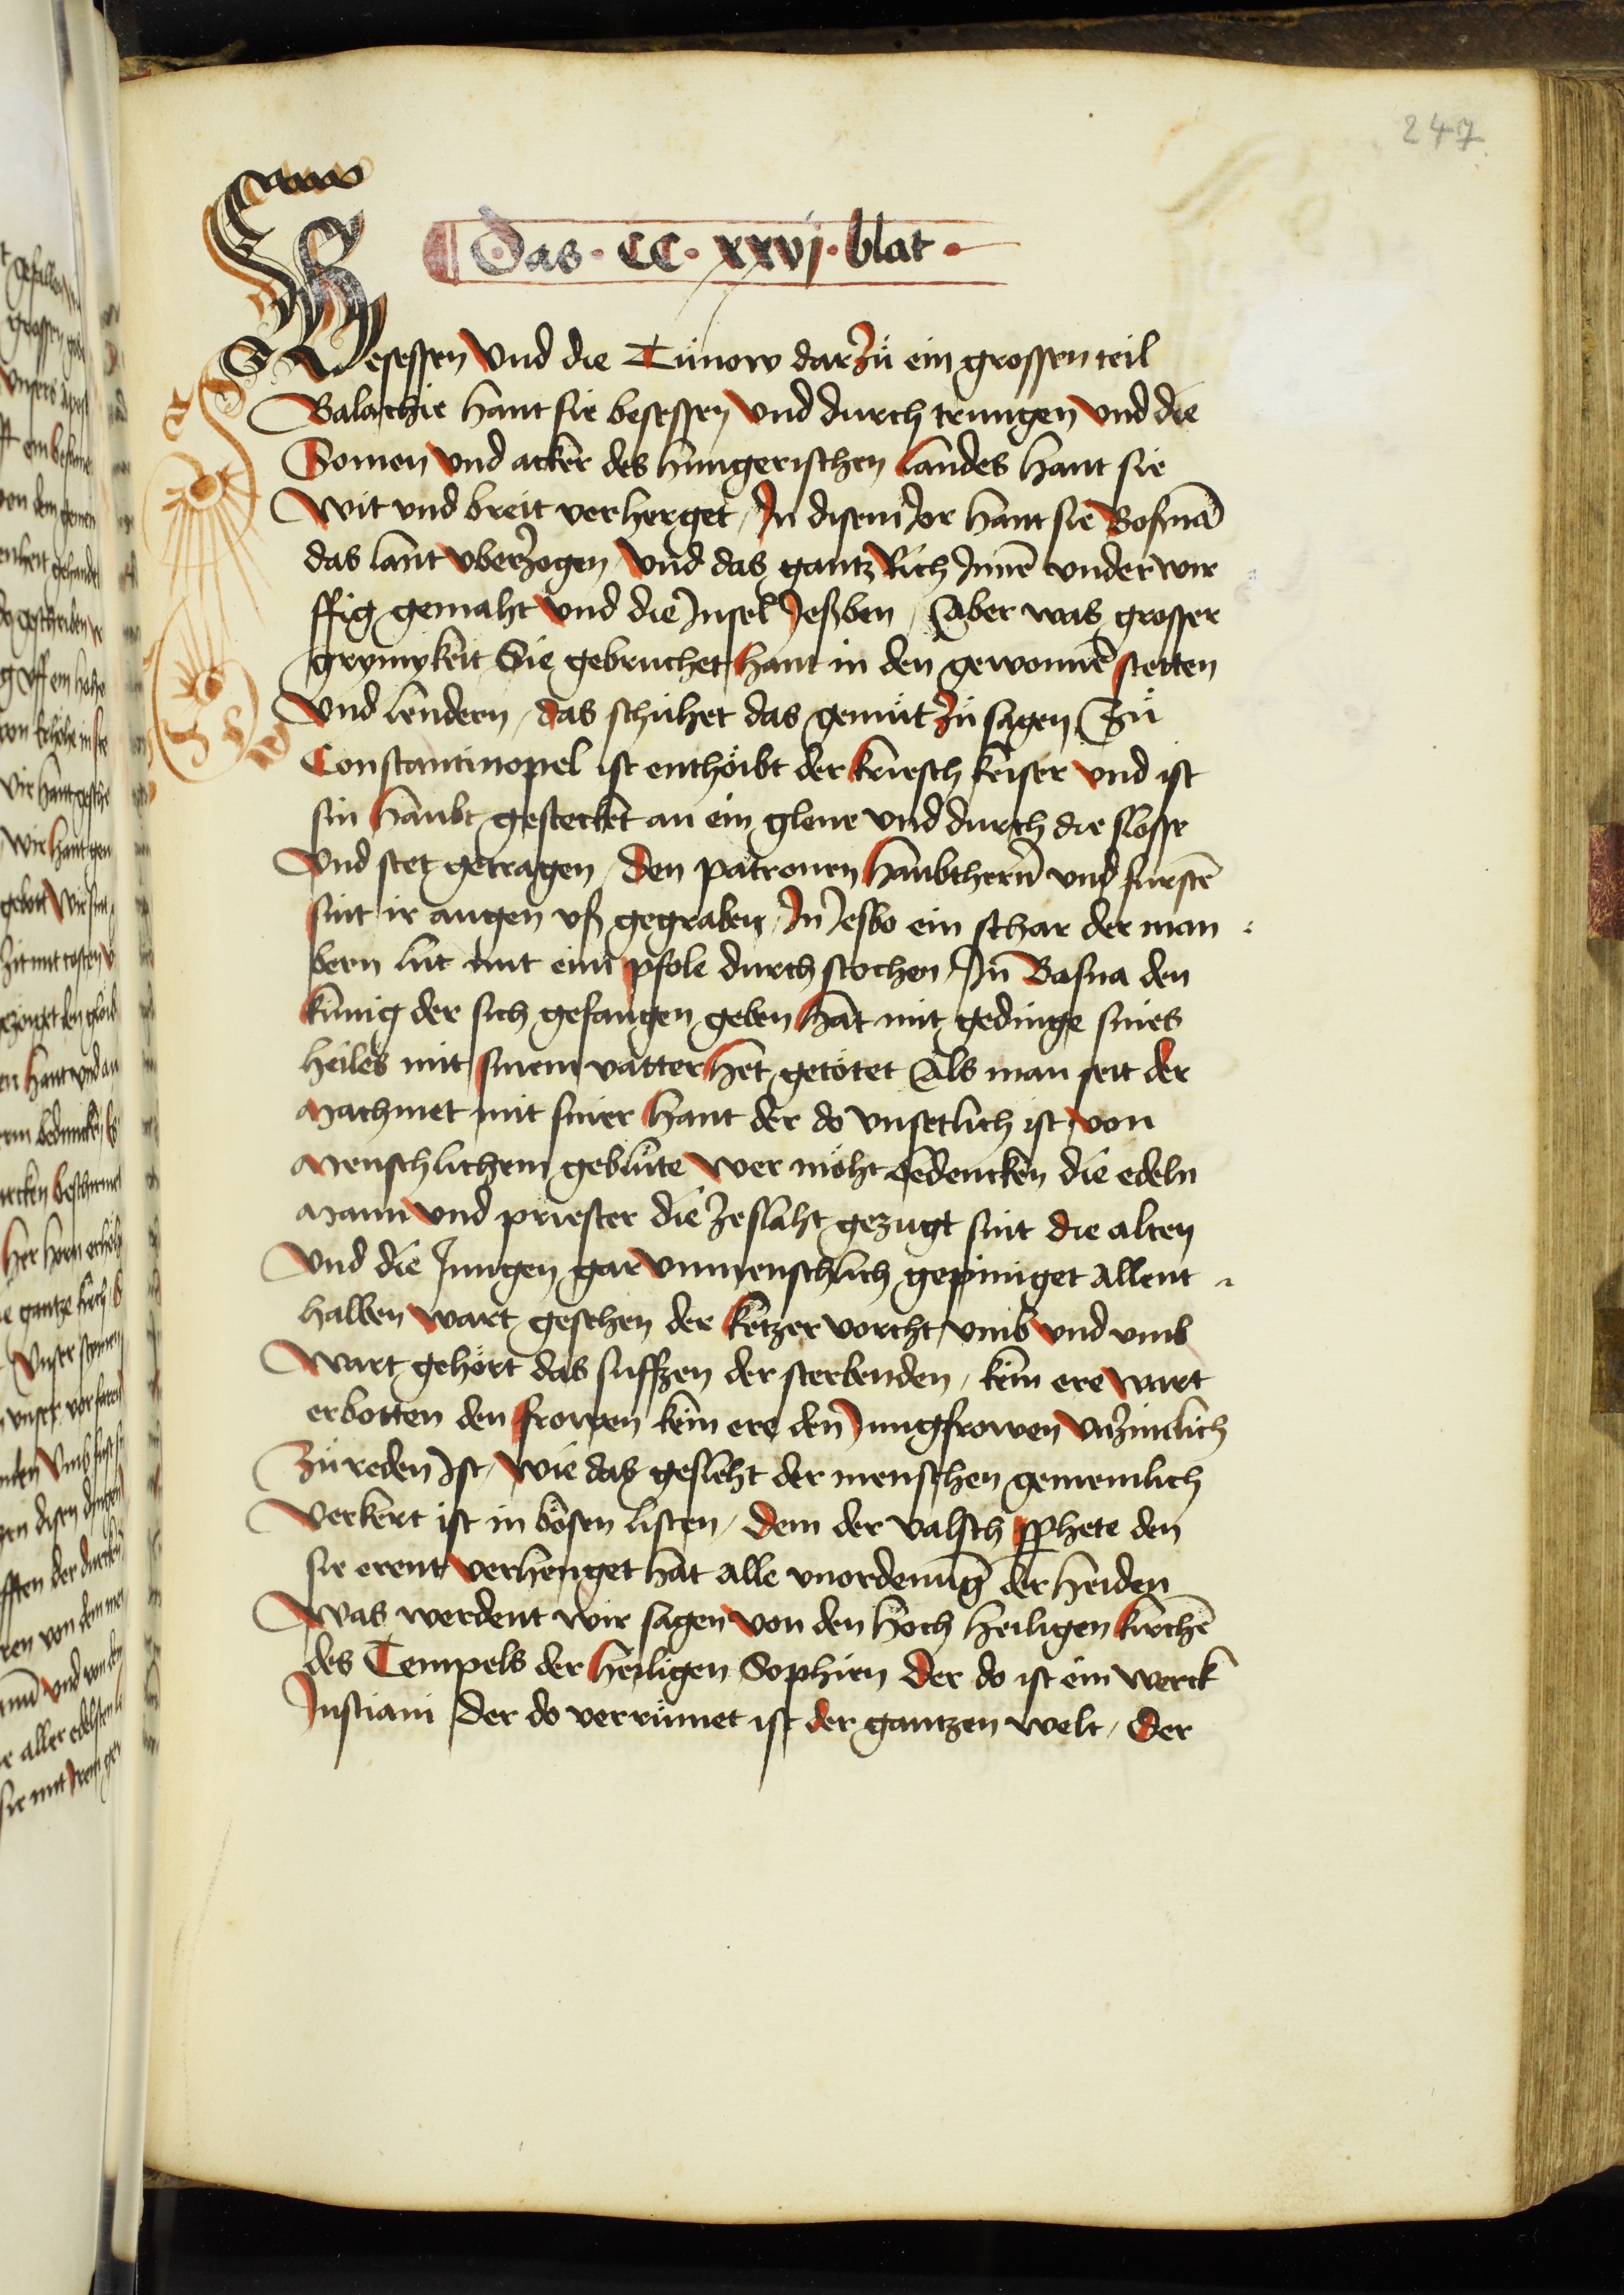 247
Das · CC · xxvj · blat ·
Besessen Vnd die Tůnow darzů ein grossen teil
Balachie hant sie besessen Vnd durch trungen Vnd die
Somen Vnd acker des hungerischen landes hant sie
Wit vnd breit verherget / In disem Jor hant sie Bosnā
das lant vberzogen Vnd das gantz Rich Innē vnder wir
ffig gemaht Vnd die Insel Jesben / Aber was grosser
grymykeit Sie gebruchet hant in den gewonnē stetten
Vnd lendern / das schuhet das gemüt zů sagen Zů
Constantinopel ist enthöibt der kriesch keiser Vnd ist
sin haubt gestecket an ein glene vnd durch die slosse
Vnd stet getragen / den patronen haubthern̄ vnd furstē
sint ir augen vsz gegraben / In Jesbo ein schar der man
bern lut mit eim pfole durch stochen / In Basna den
künig der sich gefangen geben hat mit gedinge sines
heiles mit sinem vatter het getötet Als man seit der
Machmet mit siner hant der do vnsetlich ist von
Menschlichem geblüte Wer möht bedencken die edeln
Mann Vnd priester die zeslaht gezugt sint die alten
Vnd die Jungen gar Vnmenschlich gepiniget Allent
halben wart gesehen der ketzer vorcht / vmb Vnd vmb
Wart gehört das suffzen der sterbenden / kein ere wart
erbotten den frowen kein ere den Jungfrowen Vnzimlich
Zů reden Ist / Wie das gesleht der menschen gemeinlich
Verkert ist in bösen listen / dem der valsch pphete den
sie erent verhenget hat alle vnordenung der heiden
Was werdent wir sagen von den hoch heiligen kirchē
des Tempels der heiligen Sophien der do ist ein werck
Justiani der do verrümet ist der gantzen welt / der